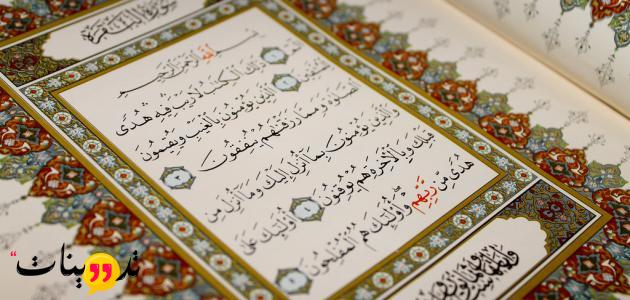 سورة البقرة
بسم الله الرحمن الرحيم
الم ذلك الكتب لا ريب فيه هدى
للمتقين الذين يؤمنون بالغيب ويقيمون
الصلوة ومما رزقنهم ينفقون
والذين يؤمنون بما أنزل إليك وما أنزل من
قبلك وبالآخرة هم يوقنون أولئك على
هدى من ربهم وأولئك هم المفلحون
تدوينات